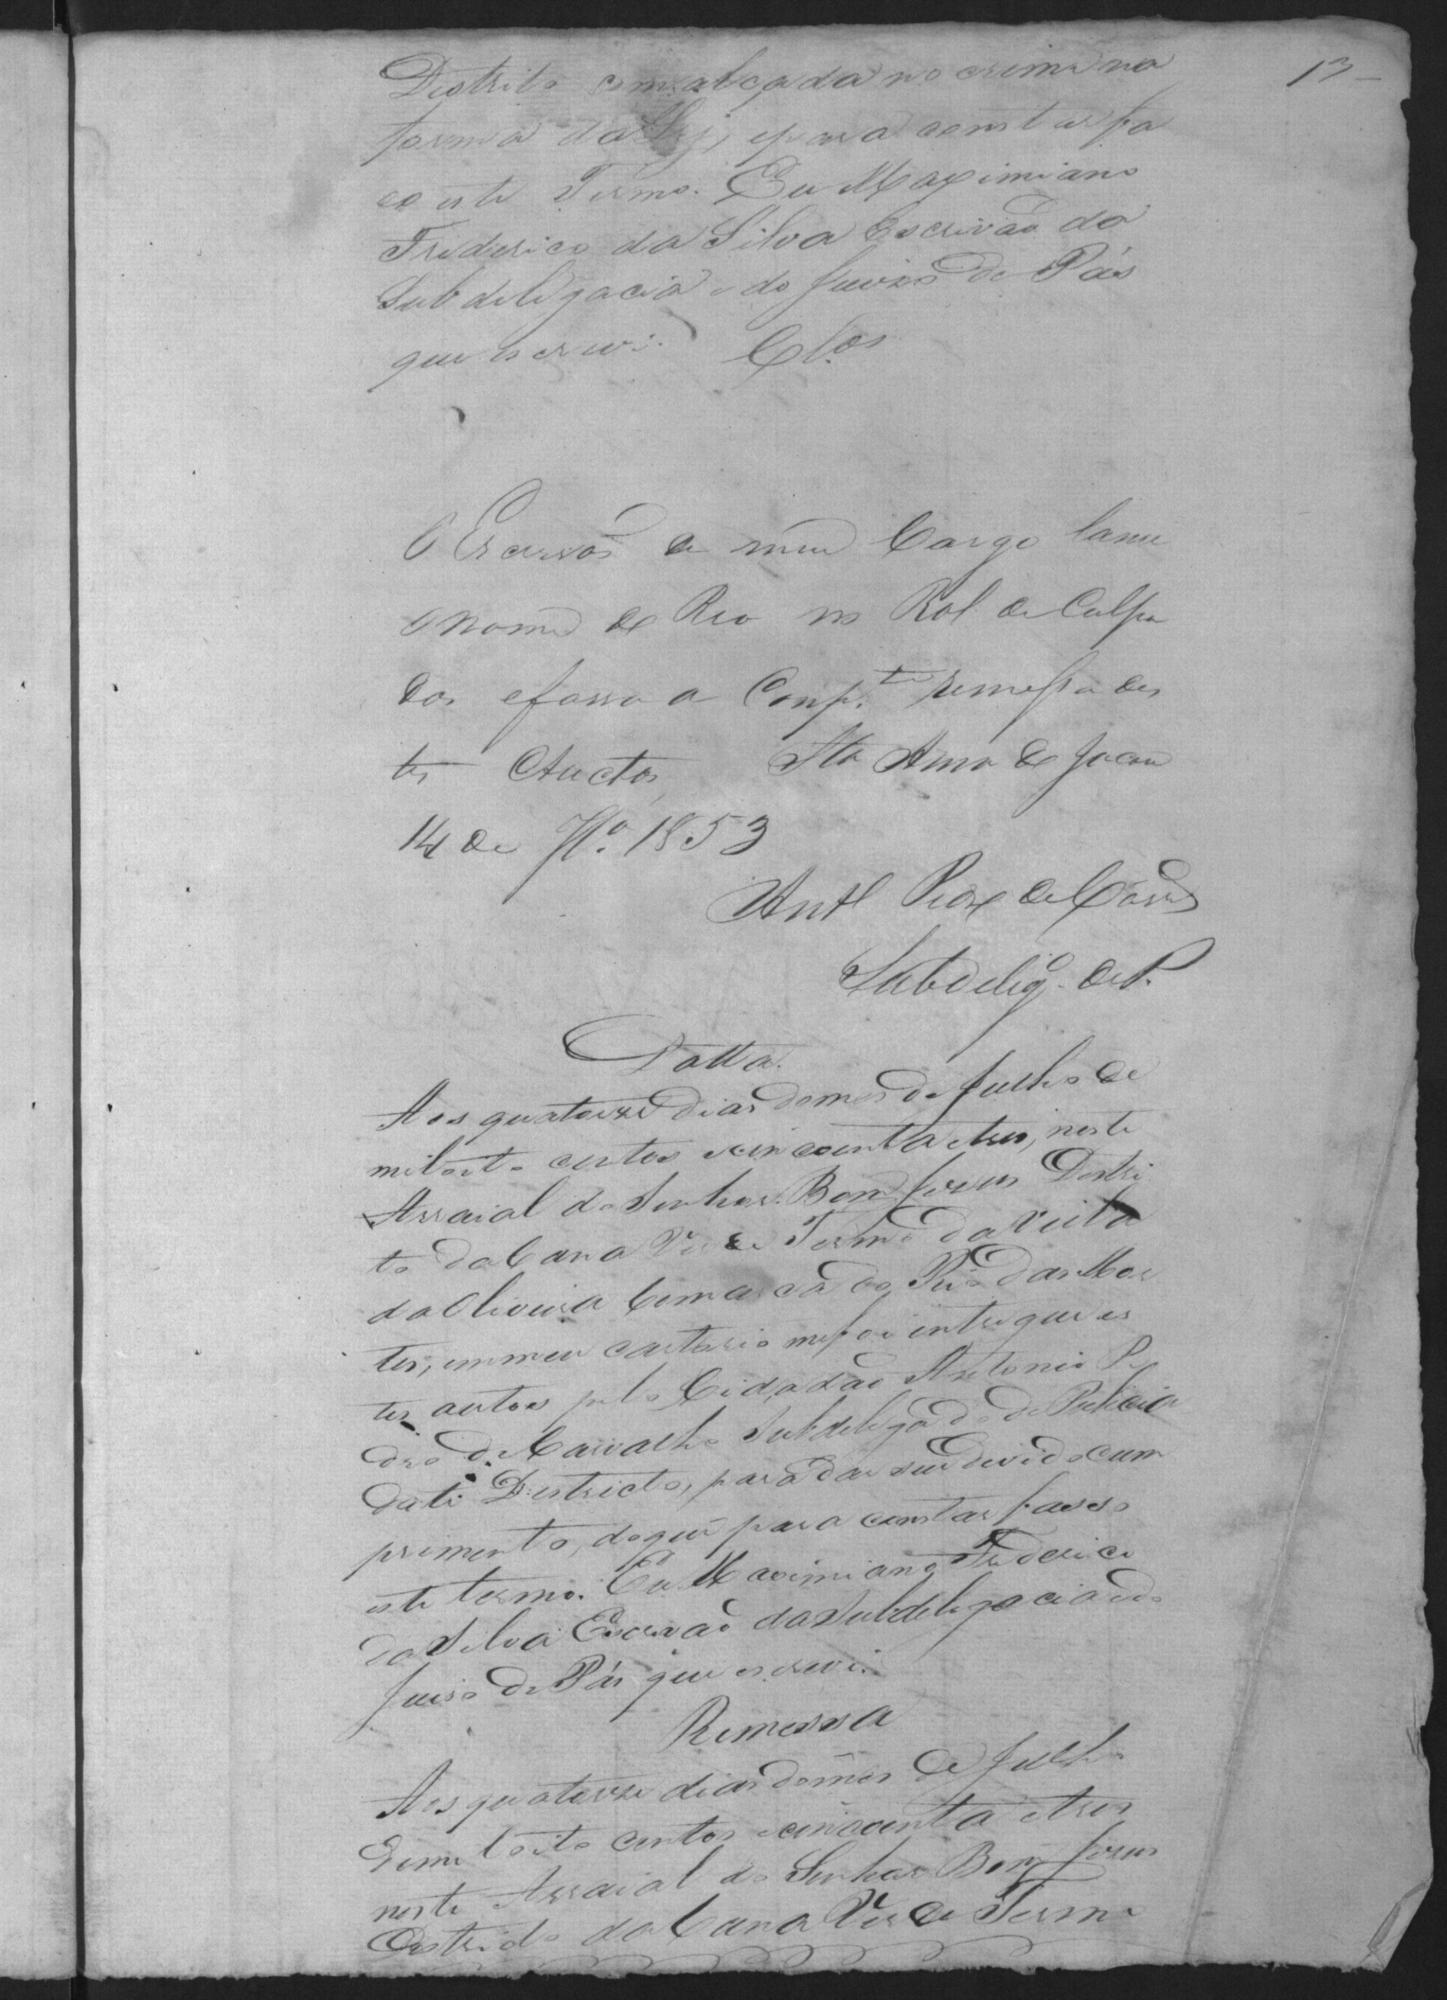 13
Distrito com alçada no crime na
forma da Ley, epara constar fa
ço este Termo. Eu Maximiano
Friderico da Silva Escrivão da
Subdeligacia e do Juizo de Pás
que escrevi. Cl.os
O Escrivão de meu Cargo lance
o nome do Reo no Rol de Culpa
dos efassa a Comp.te remessa des
tes Auctos, Sta Anna de Jacaré
14 de Jlº. 1853
Ant Pedr de Carv
Subdelegº. de P.
Datta.
Aos quatorze dias domes de Julho de
mil oito centos ecincoenta etres, neste
Arraial do Senhor Bom Jesus Destri
to da Cana Verde Termo da Villa
da Oliveira Comarca do Rio das Mor
tes, emmeu cartorio mefoi intregue es
tes autos pelo Cidadão Antonio Pe
dro de Carvalho Subdelegado de Policia
deste Destricto, para dar seu devido cum
primento, doque para constar fasso
este termo. Eu Maximiano Friderico
da Silva Escrivão da Subdeligacia edo
Juiso de Pás que escrevi.
Remessa
Aos quatorze dias domes de Julho
demil oito centos ecincoenta etres
neste Arraial do Senhor Bom Jesus
Destrito da Cana Verde Termo